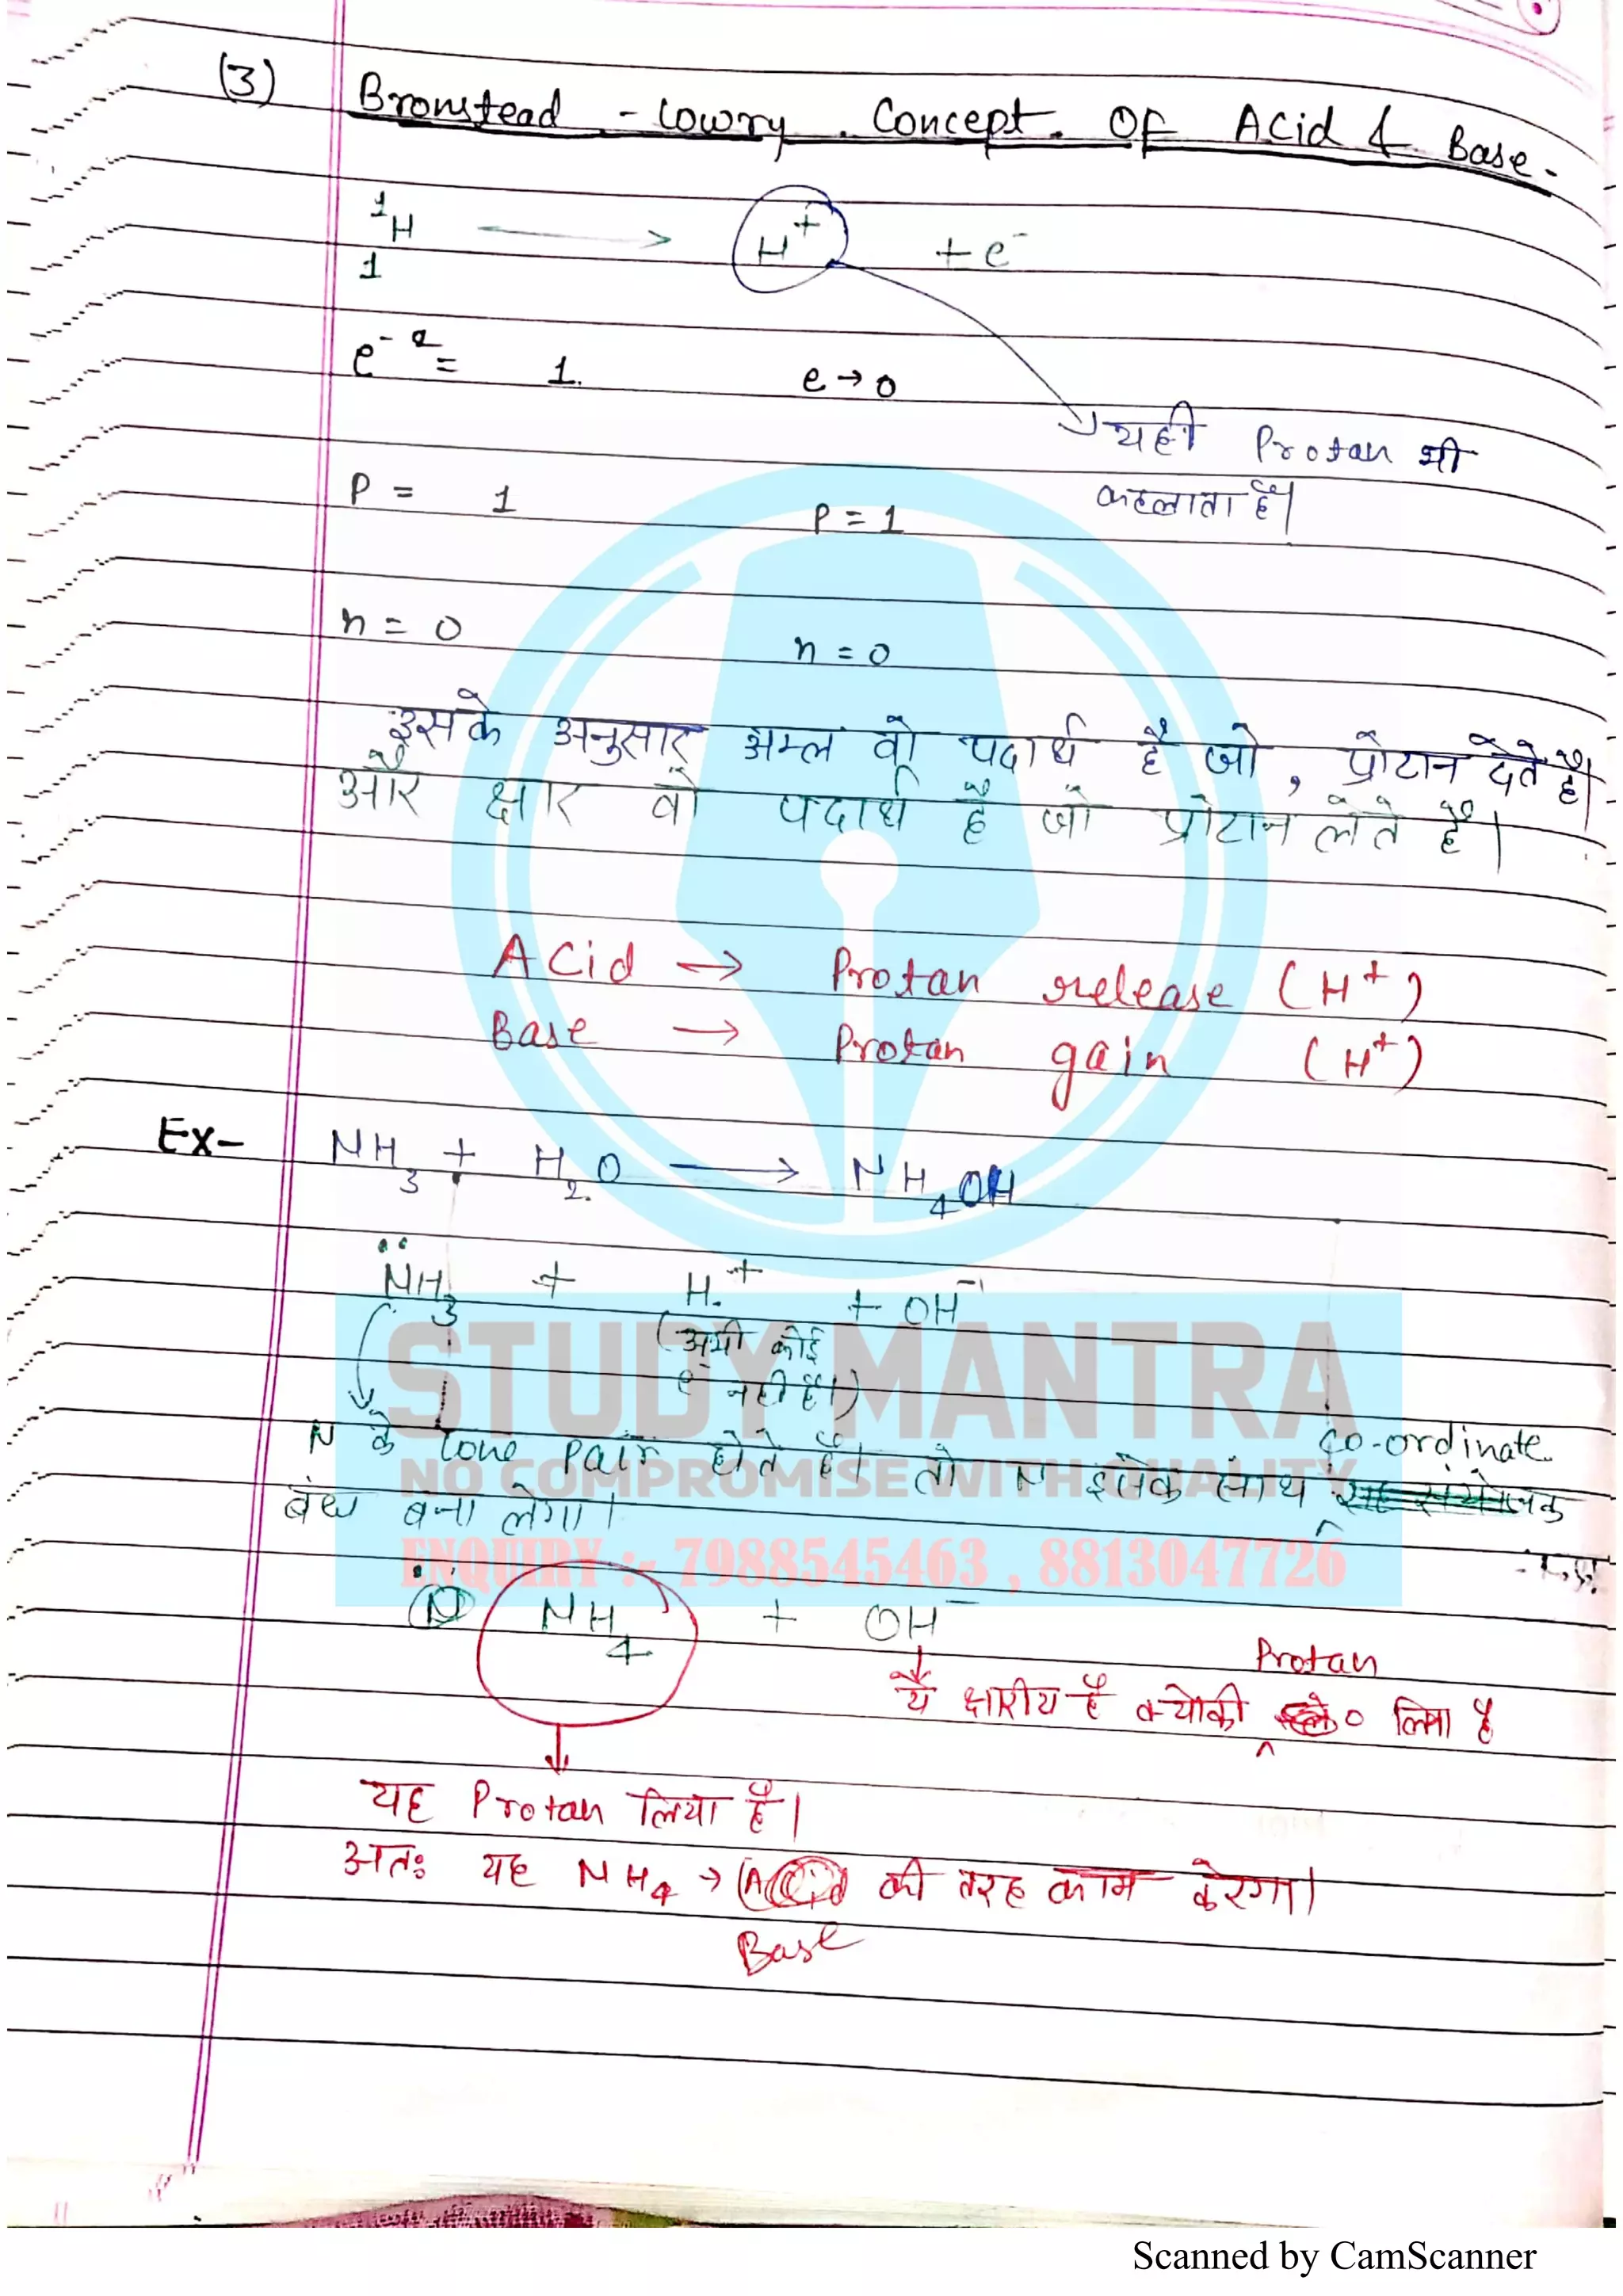 (3) Bronstead - Lowry Concept OF Acid & Base.
1
H → H+ + e-
1
e- = 1. e → 0
यही Protan भी
कहलाता है।
P = 1 P = 1
n = 0 n = 0
इसके अनुसार अम्ल वो पदार्थ है जो, प्रोटान देते है।
और क्षार वो पदार्थ है जो प्रोटान लेते है।
Acid → Protan release (H+)
Base → Protan gain (H+)
Ex- NH3 + H2O → NH4OH
NH3 + H+ + OH-
(अभी कोई
e- नही है।)
STUDY MANTRA
co-ordinate
N के lone pair होते है। तो N इसके साथ
NO COMPROMISE WITH QUALITY
बंध बना लेगा।
ENQUIRY :- 7988545463 , 8813047726
NH4 + OH-
Protan
ये क्षारीय है क्योकी लिया है
यह Protan लिया है।
अतः यह NH4 → Acid की तरह काम करेगा।
Base
Scanned by CamScanner